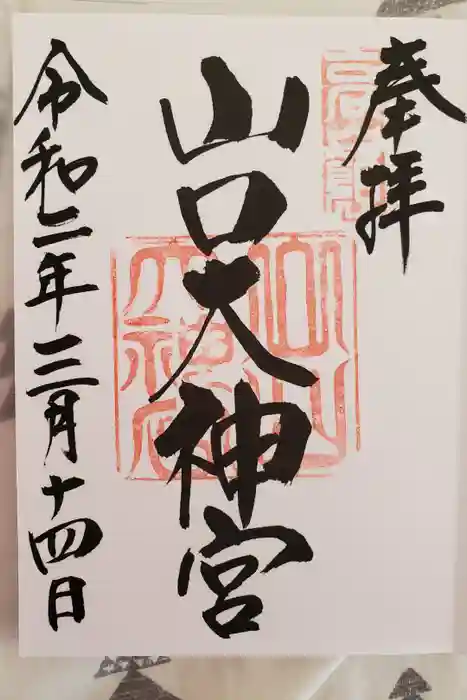 奉拝
山口大神宮
令和二年三月十四日